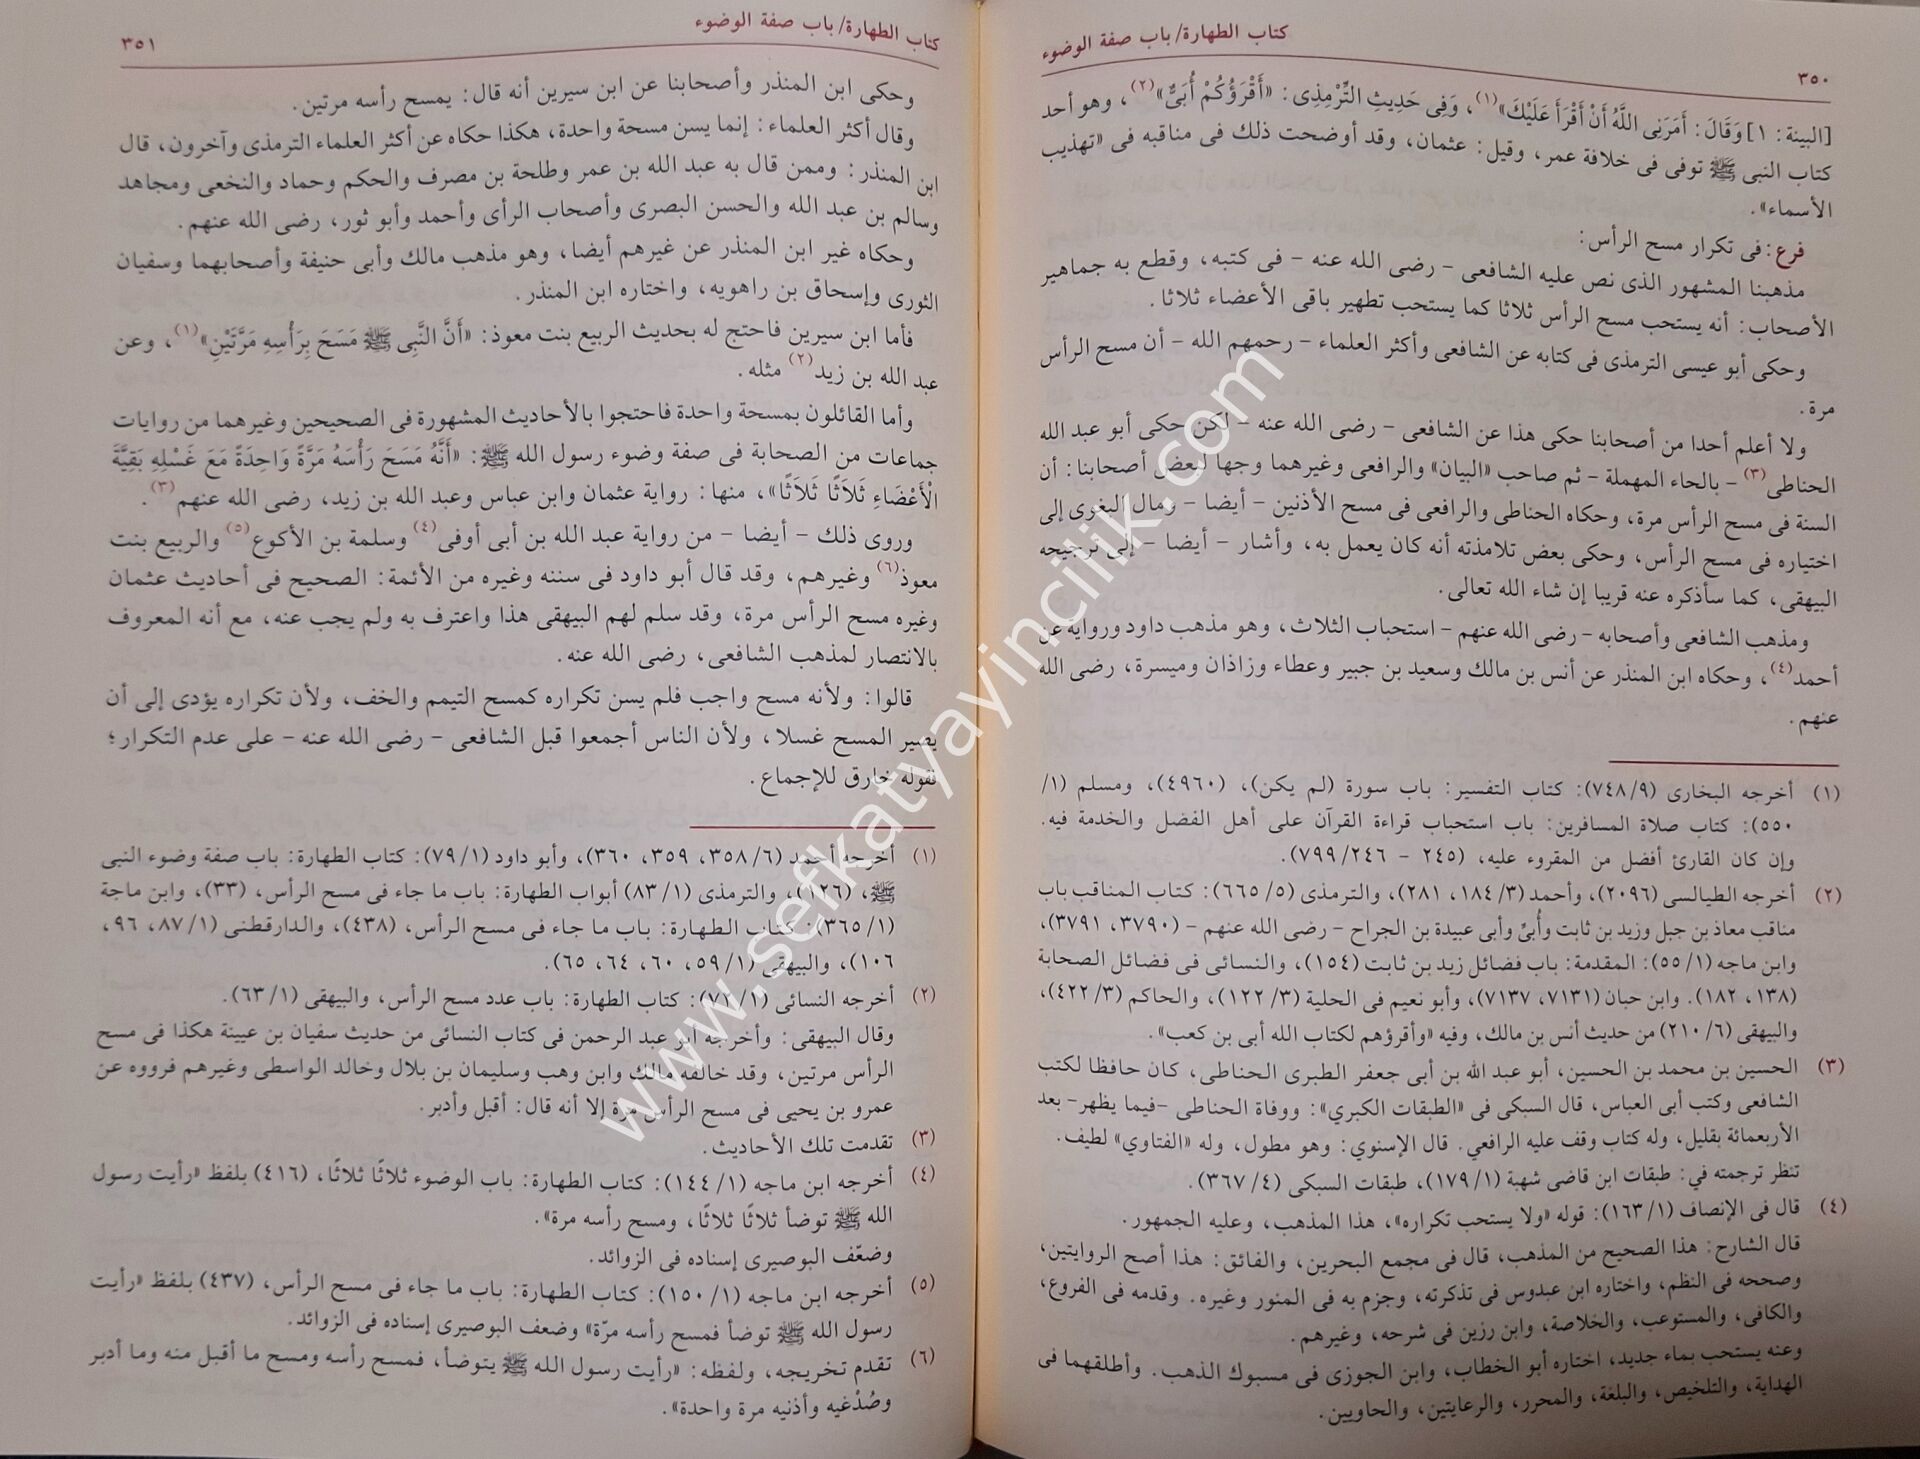 كتاب الطهارة/ باب صفة الوضوء
٣٥٠
[البينة: ١] وَقَالَ: أَمَرَنِى اللَّهُ أَنْ أَقْرَأَ عَلَيْكَ»(١)، وَفِى حَدِيثِ التِّرْمِذِى: «أَقْرَؤُكُمْ أُبَىٌّ»(٢)، وهو أحد
كتاب النبى ﷺ توفى فى خلافة عمر، وقيل: عثمان، وقد أوضحت ذلك فى مناقبه فى «تهذيب
الأسماء».
فرع: فى تكرار مسح الرأس:
مذهبنا المشهور الذى نص عليه الشافعى – رضى الله عنه – فى كتبه، وقطع به جماهير
الأصحاب: أنه يستحب مسح الرأس ثلاثا كما يستحب تطهير باقى الأعضاء ثلاثا.
وحكى أبو عيسى الترمذى فى كتابه عن الشافعى وأكثر العلماء – رحمهم الله – أن مسح الرأس
مرة.
ولا أعلم أحدا من أصحابنا حكى هذا عن الشافعى – رضى الله عنه – لكن حكى أبو عبد الله
الحناطى(٣) – بالحاء المهملة – ثم صاحب «البيان» والرافعى وغيرهما وجها لبعض أصحابنا: أن
السنة فى مسح الرأس مرة، وحكاه الحناطى والرافعى فى مسح الأذنين – أيضا – ومال البغوى إلى
اختياره فى مسح الرأس، وحكى بعض تلامذته أنه كان يعمل به، وأشار – أيضا – إلى ترجيحه
البيهقى، كما سأذكره عنه قريبا إن شاء الله تعالى.
ومذهب الشافعى وأصحابه – رضى الله عنهم – استحباب الثلاث، وهو مذهب داود ورواية عن
أحمد(٤)، وحكاه ابن المنذر عن أنس بن مالك وسعيد بن جبير وعطاء وزاذان وميسرة، رضى الله
عنهم.
(١) أخرجه البخارى (٧٤٨/٩): كتاب التفسير: باب سورة (لم يكن)، (٤٩٦٠)، ومسلم (١/
٥٥٠): كتاب صلاة المسافرين: باب استحباب قراءة القرآن على أهل الفضل والخدمة فيه.
وإن كان القارئ أفضل من المقروء عليه، (٢٤٥ – ٢٤٦/ ٧٩٩).
(٢) أخرجه الطيالسى (٢٠٩٦)، وأحمد (٣/ ١٨٤، ٢٨١)، والترمذى (٥/ ٦٦٥): كتاب المناقب باب
مناقب معاذ بن جبل وزيد بن ثابت وأُبىٍّ وأبى عبيدة بن الجراح – رضى الله عنهم – (٣٧٩٠، ٣٧٩١)،
وابن ماجه (١/ ٥٥): المقدمة: باب فضائل زيد بن ثابت (١٥٤)، والنسائى فى فضائل الصحابة
(١٣٨، ١٨٢). وابن حبان (٧١٣١، ٧١٣٧)، وأبو نعيم فى الحلية (٣/ ١٢٢)، والحاكم (٣/ ٤٢٢)،
والبيهقى (٦/ ٢١٠) من حديث أنس بن مالك، وفيه «وأقرؤهم لكتاب الله أبى بن كعب».
(٣) الحسين بن محمد بن الحسين، أبو عبد الله بن أبى جعفر الطبرى الحناطى، كان حافظا لكتب
الشافعى وكتب أبى العباس، قال السبكى فى «الطبقات الكبري»: ووفاة الحناطى –فيما يظهر– بعد
الأربعمائة بقليل، وله كتاب وقف عليه الرافعي. قال الإسنوي: وهو مطول، وله «الفتاوي» لطيف.
تنظر ترجمته في: طبقات ابن قاضى شهبة (١/ ١٧٩)، طبقات السبكى (٤/ ٣٦٧).
(٤) قال فى الإنصاف (١/ ١٦٣): قوله «ولا يستحب تكراره»، هذا المذهب، وعليه الجمهور.
قال الشارح: هذا الصحيح من المذهب، قال فى مجمع البحرين، والفائق: هذا أصح الروايتين،
وصححه فى النظم، واختاره ابن عبدوس فى تذكرته، وجزم به فى المنور وغيره. وقدمه فى الفروع،
والكافى، والمستوعب، والخلاصة، وابن رزين فى شرحه، وغيرهم.
وعنه يستحب بماء جديد، اختاره أبو الخطاب، وابن الجوزى فى مسبوك الذهب. وأطلقهما فى
الهداية، والتلخيص، والبلغة، والمحرر، والرعايتين، والحاويين.
كتاب الطهارة/ باب صفة الوضوء
٣٥١
وحكى ابن المنذر وأصحابنا عن ابن سيرين أنه قال: يمسح رأسه مرتين.
وقال أكثر العلماء: إنما يسن مسحة واحدة، هكذا حكاه عن أكثر العلماء الترمذى وآخرون، قال
ابن المنذر: وممن قال به عبد الله بن عمر وطلحة بن مصرف والحكم وحماد والنخعى ومجاهد
وسالم بن عبد الله والحسن البصرى وأصحاب الرأى وأحمد وأبو ثور، رضى الله عنهم.
وحكاه غير ابن المنذر عن غيرهم أيضا، وهو مذهب مالك وأبى حنيفة وأصحابهما وسفيان
الثورى وإسحاق بن راهويه، واختاره ابن المنذر.
فأما ابن سيرين فاحتج له بحديث الربيع بنت معوذ: «أَنَّ النَّبِى ﷺ مَسَحَ بِرَأْسِهِ مَرَّتَيْنِ»(١)، وعن
عبد الله بن زيد(٢) مثله.
وأما القائلون بمسحة واحدة فاحتجوا بالأحاديث المشهورة فى الصحيحين وغيرهما من روايات
جماعات من الصحابة فى صفة وضوء رسول الله ﷺ: «أَنَّهُ مَسَحَ رَأْسَهُ مَرَّةً وَاحِدَةً مَعَ غَسْلِهِ بَقِيَّةَ
الْأَعْضَاءِ ثَلَاثًا ثَلَاثًا»، منها: رواية عثمان وابن عباس وعبد الله بن زيد، رضى الله عنهم(٣).
وروى ذلك – أيضا – من رواية عبد الله بن أبى أوفى(٤) وسلمة بن الأكوع(٥) والربيع بنت
معوذ(٦) وغيرهم، وقد قال أبو داود فى سننه وغيره من الأئمة: الصحيح فى أحاديث عثمان
وغيره مسح الرأس مرة، وقد سلم لهم البيهقى هذا واعترف به ولم يجب عنه، مع أنه المعروف
بالانتصار لمذهب الشافعى، رضى الله عنه.
قالوا: ولأنه مسح واجب فلم يسن تكراره كمسح التيمم والخف، ولأن تكراره يؤدى إلى أن
يصير المسح غسلا، ولأن الناس أجمعوا قبل الشافعى – رضى الله عنه – على عدم التكرار؛
فقوله خارق للإجماع.
(١) أخرجه أحمد (٦/ ٣٥٨، ٣٥٩، ٣٦٠)، وأبو داود (١/ ٧٩): كتاب الطهارة: باب صفة وضوء النبى
ﷺ، (١٢٦)، والترمذى (١/ ٨٣) أبواب الطهارة: باب ما جاء فى مسح الرأس، (٣٣)، وابن ماجة
(١/ ٣٦٥): كتاب الطهارة: باب ما جاء فى مسح الرأس، (٤٣٨)، والدارقطنى (١/ ٨٧، ٩٦،
١٠٦)، والبيهقى (١/ ٥٩، ٦٠، ٦٤، ٦٥).
(٢) أخرجه النسائى (١/ ٧٢): كتاب الطهارة: باب عدد مسح الرأس، والبيهقى (١/ ٦٣).
وقال البيهقى: وأخرجه أبو عبد الرحمن فى كتاب النسائى من حديث سفيان بن عيينة هكذا فى مسح
الرأس مرتين، وقد خالفه مالك وابن وهب وسليمان بن بلال وخالد الواسطى وغيرهم فرووه عن
عمرو بن يحيى فى مسح الرأس مرة إلا أنه قال: أقبل وأدبر.
(٣) تقدمت تلك الأحاديث.
(٤) أخرجه ابن ماجه (١/ ١٤٤): كتاب الطهارة: باب الوضوء ثلاثًا ثلاثًا، (٤١٦) بلفظ «رأيت رسول
الله ﷺ توضأ ثلاثًا ثلاثًا، ومسح رأسه مرة».
وضعّف البوصيرى إسناده فى الزوائد.
(٥) أخرجه ابن ماجه (١/ ١٥٠): كتاب الطهارة: باب ما جاء فى مسح الرأس، (٤٣٧) بلفظ «رأيت
رسول الله ﷺ توضأ فمسح رأسه مرّة» وضعف البوصيرى إسناده فى الزوائد.
(٦) تقدم تخريجه، ولفظه: «رأيت رسول الله ﷺ يتوضأ، فمسح رأسه ومسح ما أقبل منه وما أدبر
وصُدْغيه وأذنيه مرة واحدة».
www.sefkatyayincilik.com